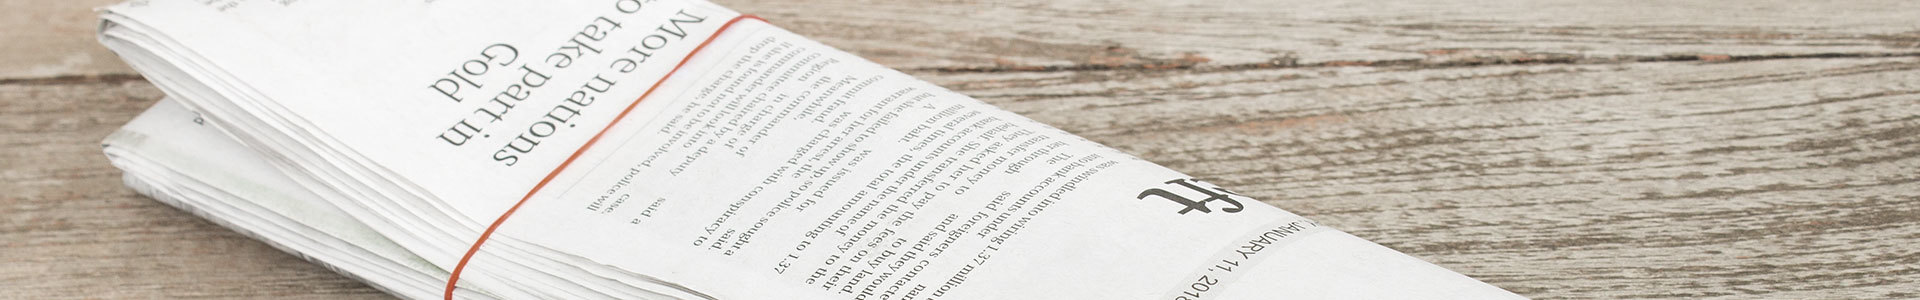 More nations
to take part in
Gold
eft
JANUARY 11, 2018
was swindled into wiring 1.37 million
into bank accounts under
The said foreigners
her through and said they would
transfer money to to buy land.
They asked her to pay the fees on their
behalf. She transferred the money to the
bank accounts under the name of
several times, the total amounting to 1.37
million baht.
A was issued for
but she failed to show up, so police sought a
warrant for her arrest, said.
was charged with conspiracy to
commit fraud.
Meanwhile,
the commander of
Region in charge of said a
committee chaired by a deputy
commander will look into case.
If she is found not to be involved, police will
drop the charge, he said